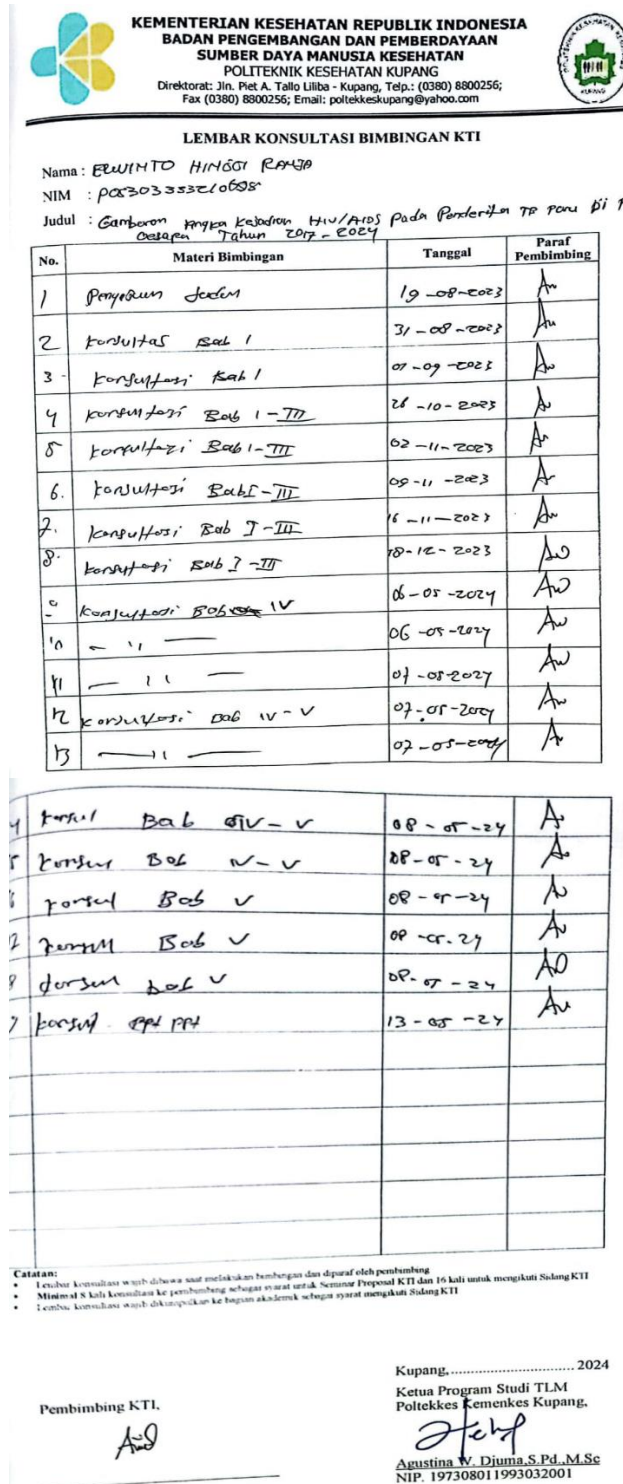 KEMENTERIAN KESEHATAN REPUBLIK INDONESIA
BADAN PENGEMBANGAN DAN PEMBERDAYAAN
SUMBER DAYA MANUSIA KESEHATAN
POLITEKNIK KESEHATAN KUPANG
Direktorat: Jln. Piet A. Tallo Liliba - Kupang, Telp.: (0380) 8800256;
Fax (0380) 8800256; Email: poltekkeskupang@yahoo.com
LEMBAR KONSULTASI BIMBINGAN KTI
Nama : ERWINTO HINGGI RANJA
NIM :
Judul : Gambaran Angka Kejadian HIV/AIDS pada Penderita TB Paru Di
Oesapa Tahun 2017 - 2024
No. Materi Bimbingan Tanggal Paraf Pembimbing
1 19-08-2023
2 konsultas Bab 1 31-08-2023
3 konsultasi Bab 1 07-09-2023
4 konsultasi Bab 1-III 26-10-2023
5 konsultasi Bab 1-III 02-11-2023
6. konsultasi Bab I-III 09-11-2023
7. konsultasi Bab I-III 16-11-2023
8. konsultasi Bab I-III 18-12-2023
9 konsultasi Bab IV 06-05-2024
10 — 11 — 06-05-2024
11 — 11 — 07-05-2024
12 konsultasi Bab IV-V 07-05-2024
13 — 11 — 07-05-2024
4 konsul Bab IV-V 08-05-24
5 konsul Bab IV-V 08-05-24
6 konsul Bab V 08-05-24
7 konsul Bab V 08-05-24
8 konsul bab V 08-05-24
9 konsul ppt 13-05-24
Catatan:
• Lembar konsultasi wajib dibawa saat melakukan bimbingan dan diparaf oleh pembimbing
• Minimal 8 kali konsultasi ke pembimbing sebagai syarat untuk Seminar Proposal KTI dan 16 kali untuk mengikuti Sidang KTI
• Lembar konsultasi wajib dikumpulkan ke bagian akademik sebagai syarat mengikuti Sidang KTI
Kupang,.............................. 2024
Pembimbing KTI,
Ketua Program Studi TLM
Poltekkes Kemenkes Kupang,
Agustina W. Djuma,S.Pd.,M.Sc
NIP. 197308011993032001